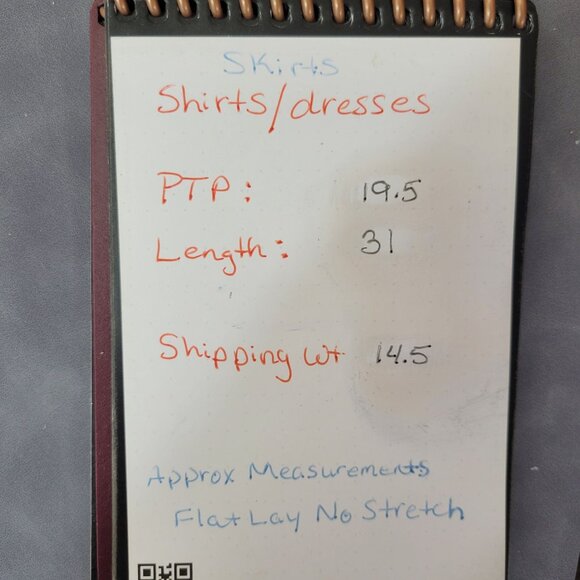 Skirts
Shirts/dresses
PTP: 19.5
Length: 31
Shipping wt 14.5
Approx Measurements
Flat Lay No Stretch